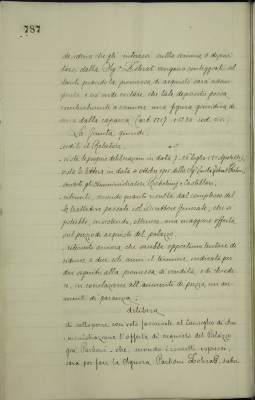 787
desidera che gli interessi sulla somma a deposi-
tarsi dalla Sig.ra Dobrat vengano conteggiati sol-
tanto quando la promessa di acquisto sarà adem-
piuta e ciò onde evitare che tale deposito possa
eventualmente assumere una figura giuridica di-
versa dalla caparra (art. 1217 cod. civ.)
La Giunta quindi,
udito il Relatore,
viste le proprie deliberazioni in data 7 - 26 luglio e 21 Agosto
vista la lettera in data 4 ottobre della Sig.
sentiti gli Amministratori e Castelloni,
ritenuto, avendo quanto risulta dal complesso del-
le trattative passate col Direttore Generale, che si
potrebbe, insistendo, ottenere una maggiore offerta
sul prezzo di acquisto del palazzo,
ritenuto ancora che sarebbe opportuno tentare di
ridurre a due soli anni il termine indicato per
dar seguito alla promessa di vendita, e di chiede-
re, in correlazione all'aumento di prezzo, un au-
mento di garanzia,
delibera
di sottoporre con voto favorevole al Consiglio di Am-
ministrazione l'offerta di acquisto del Palazzo
già Parboni - che, secondo i concetti espressi,
sarà per fare la Signora Parboni Dobrat, subor